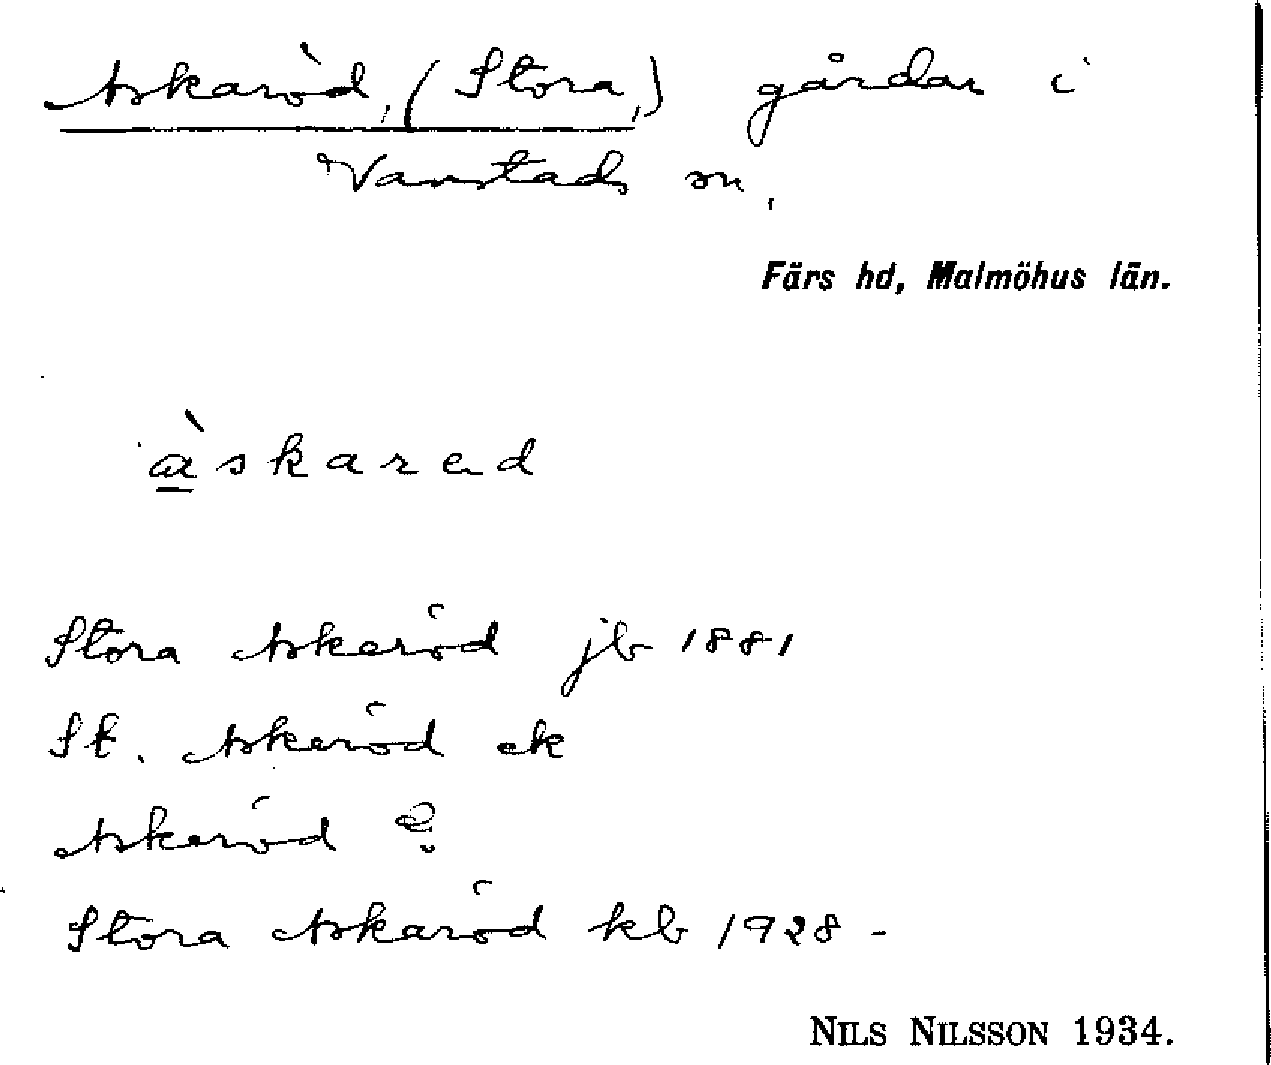 Askaröd, (Stora,) gårdar i
Vanstads sn,
Färs hd, Malmöhus län.
àskarad
Stora Askeröd jb 1881
St. Askeröd ek
Askeröd
Stora Askaröd kb 1928-
NILS NILSSON 1934.